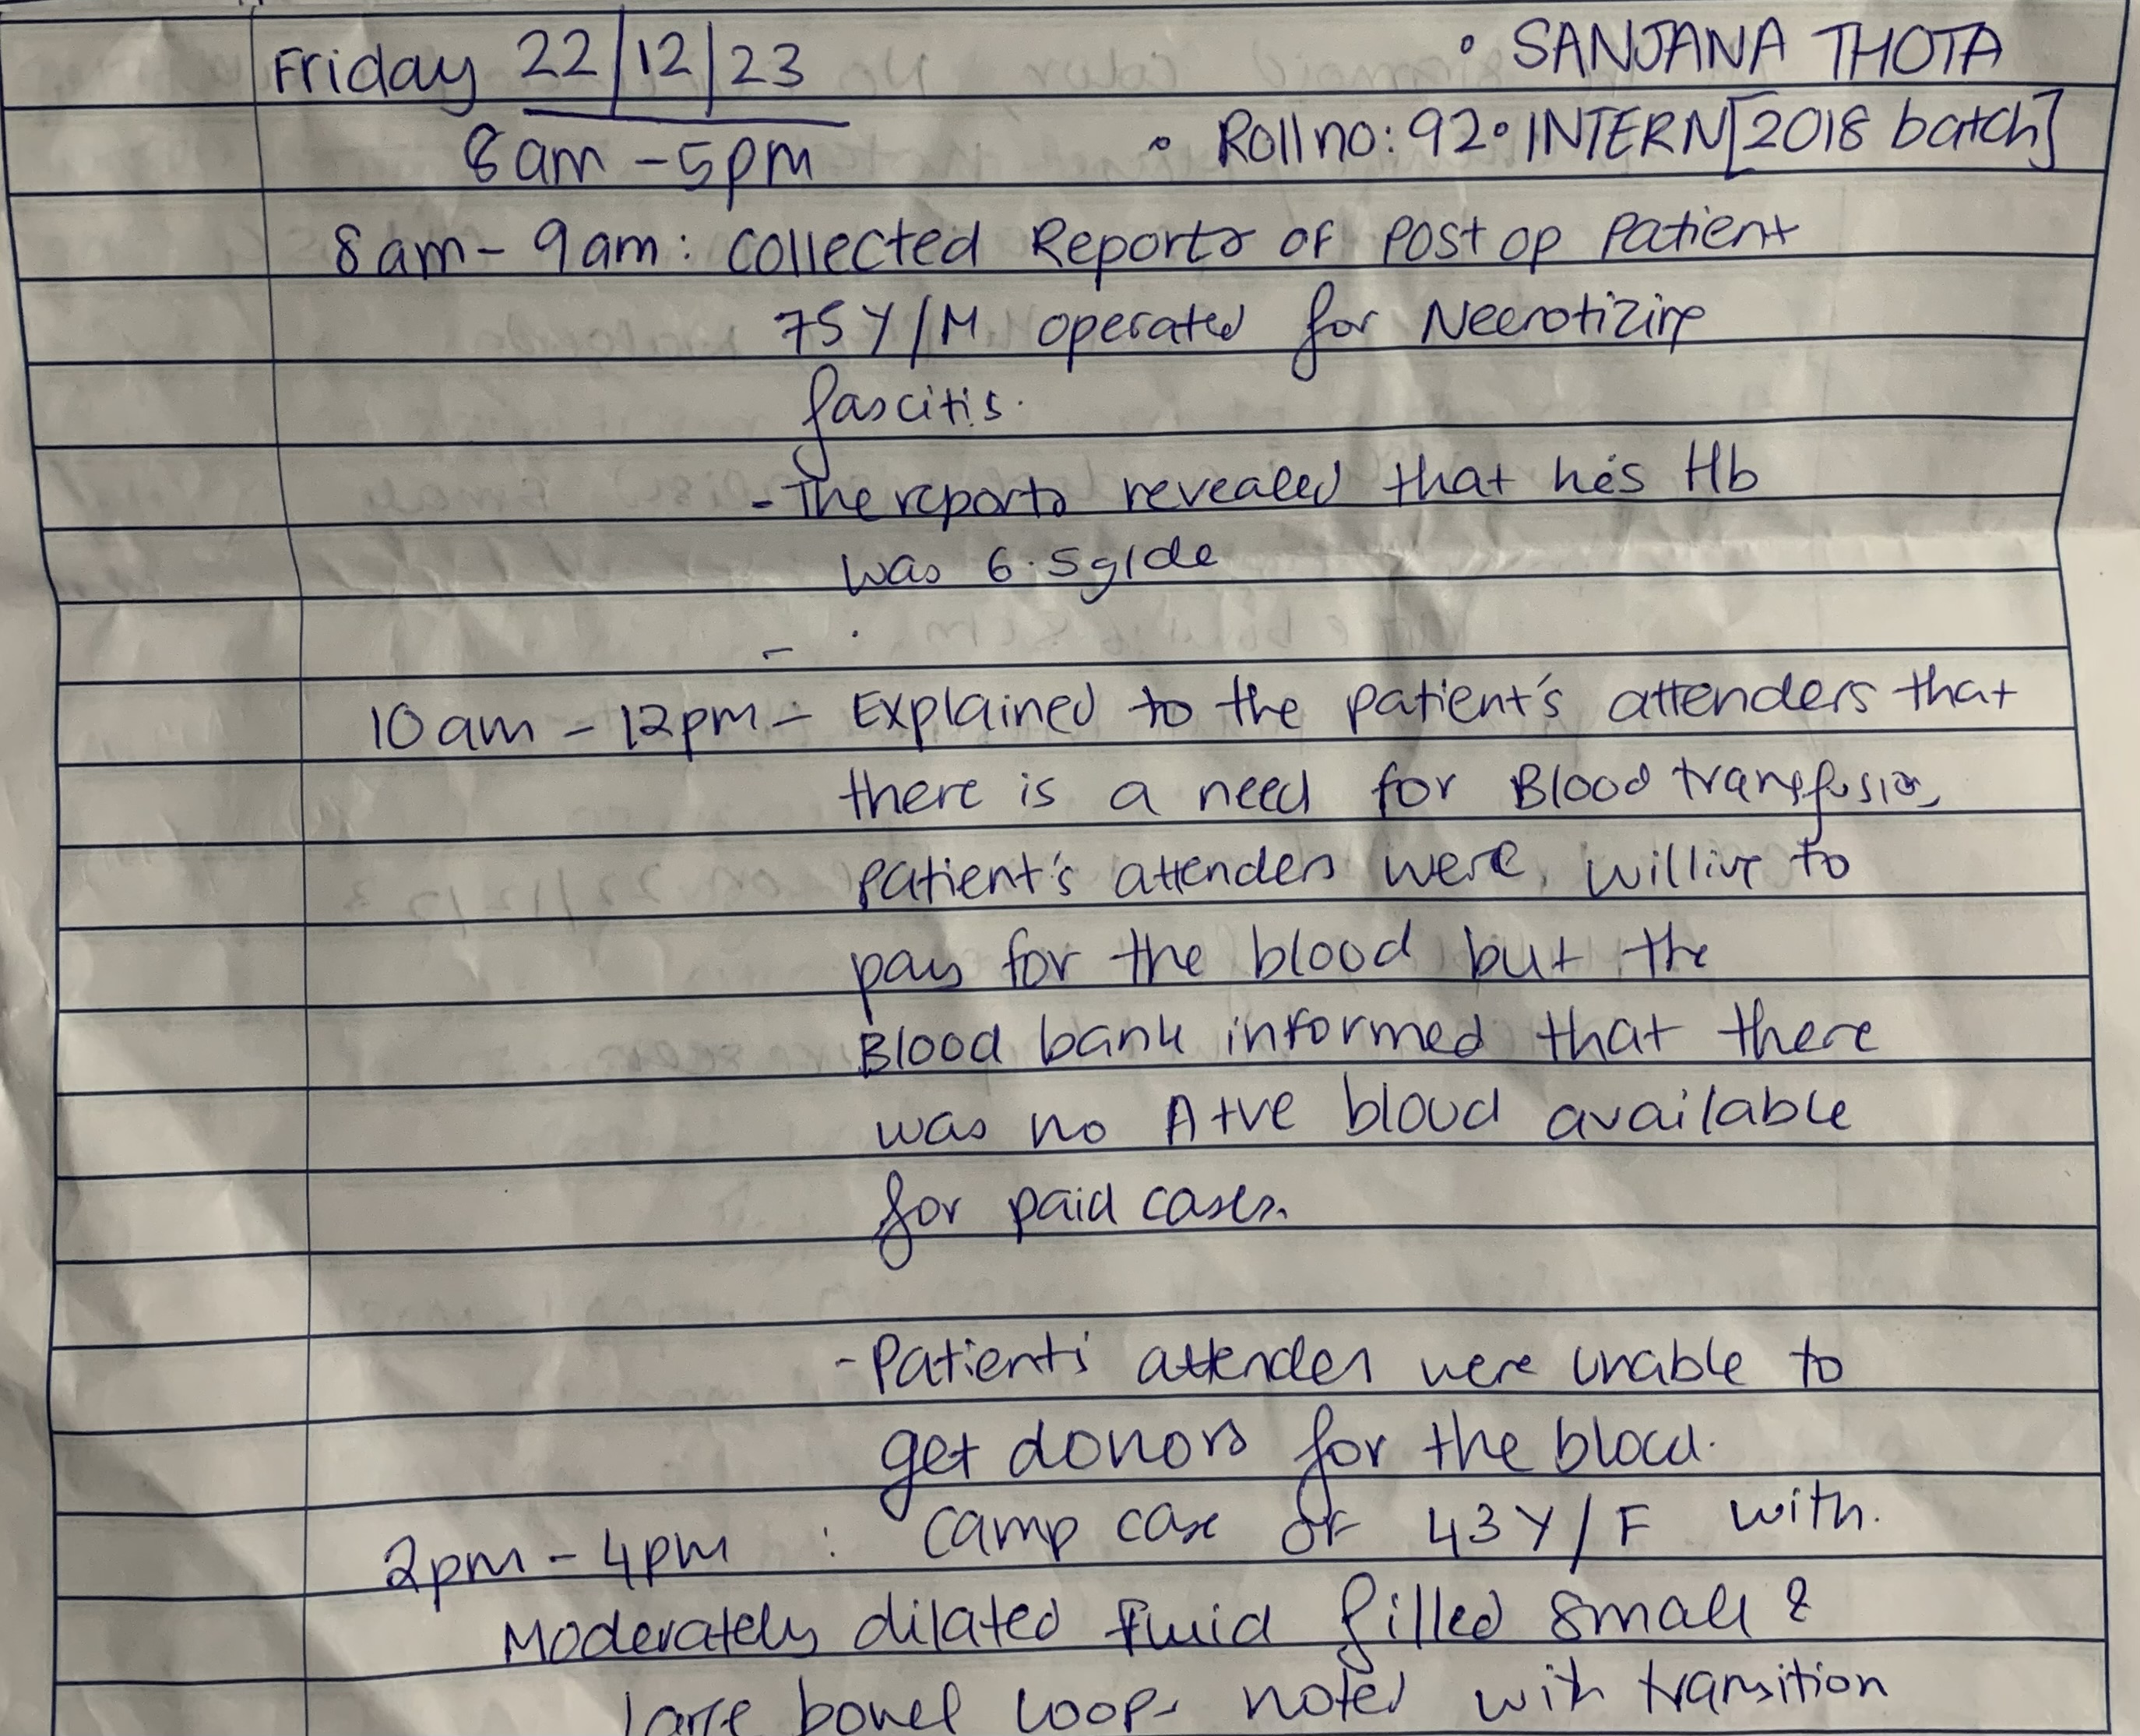 Friday 22/12/23
• SANJANA THOTA
8am - 5pm
• Roll no: 92 • INTERN [2018 batch]
8am - 9am : Collected Reports of Post op Patient
75Y/M operated for Necrotizing
fascitis.
- The reports revealed that his Hb
was 6.5 g/dl
-
10am - 12pm - Explained to the patient's attenders that
there is a need for Blood transfusion,
patient's attenders were willing to
pay for the blood but the
Blood bank informed that there
was no A+ve blood available
for paid cases.
- Patients' attenders were unable to
get donors for the blood.
2pm - 4pm : Camp case of 43Y/F with.
Moderately dilated fluid filled small &
large bowel loops noted with transition